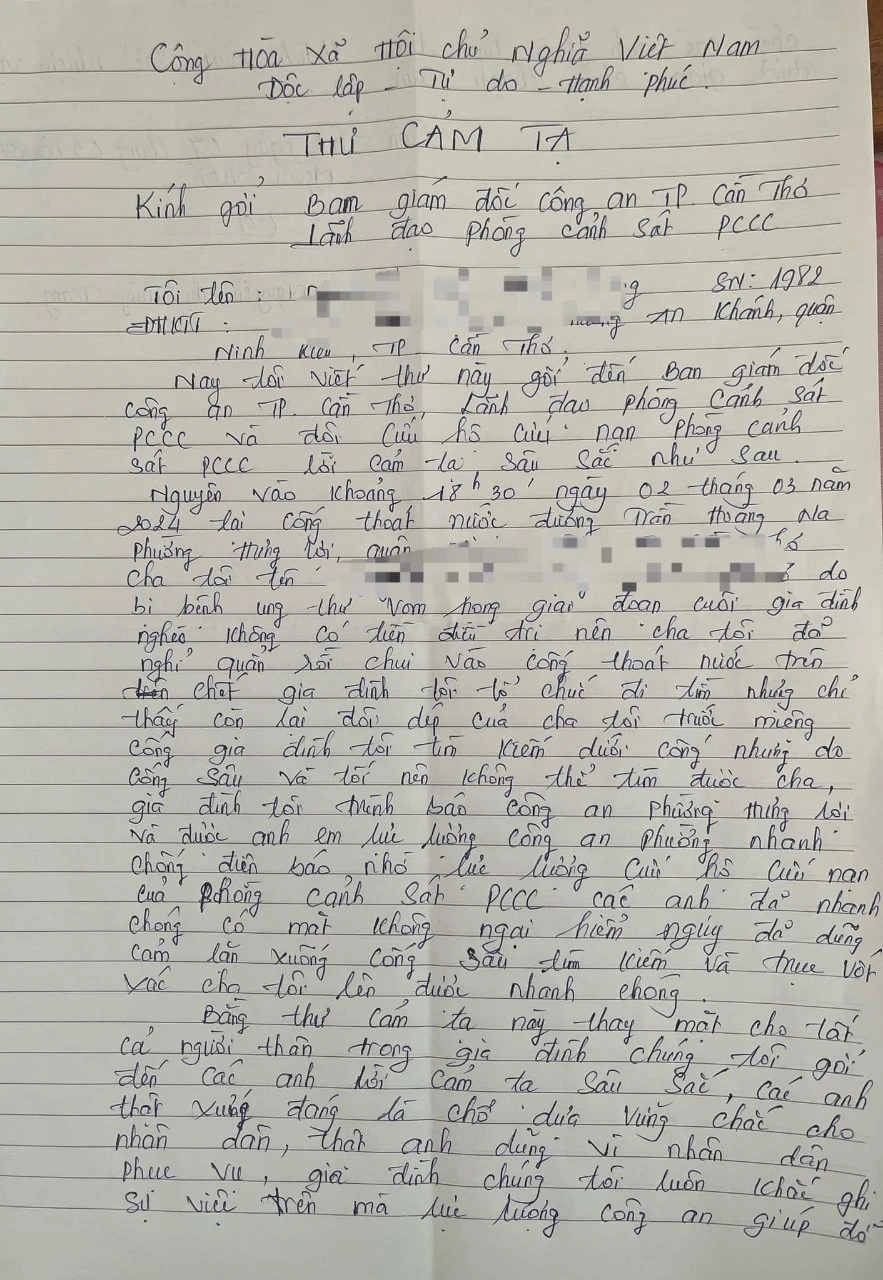 Cộng Hòa Xã Hội chủ Nghĩa Việt Nam
Độc lập - Tự do - Hạnh phúc.
THƯ CẢM TẠ
Kính gởi Bam giám đốc công an TP. Cần Thơ
Lãnh đạo phòng cảnh sát PCCC
Tôi tên : SN: 1982
ĐKTT : An Khánh, quận
Ninh Kiều, TP Cần Thơ,
Nay tôi viết thư này gởi đến Ban giám đốc
công an TP. Cần Thơ, Lãnh đạo phòng Cảnh sát
PCCC và đội cứu hộ cứu nạn phòng cảnh
sát PCCC lời cảm tạ sâu sắc như sau.
Nguyên vào khoảng 18h 30' ngày 02 tháng 03 năm
2024 tại cống thoát nước đường Trần Hoàng Na
phường Hưng Lợi, quận
cha tôi tên do
bị bệnh ung thư vòm họng giai đoạn cuối gia đình
nghèo không có tiền điều trị nên cha tôi đã
nghỉ quẩn rồi chui vào cống thoát nước trên
chết gia đình tôi tổ chức đi tìm nhưng chỉ
thấy còn lại đôi dép của cha tôi trước miệng
cống gia đình tôi tìm kiếm dưới cống nhưng do
cống sâu và tối nên không thể tìm được cha,
gia đình tôi trình báo công an phường Hưng Lợi
và được anh em lực lượng công an phường nhanh
chống điện báo nhờ lực lượng cứu hộ cứu nạn
của phòng cảnh sát PCCC các anh đã nhanh
chống có mặt không ngại hiểm nguy đã dũng
cảm lặn xuống cống sâu tìm kiếm và trục vớt
xác cha tôi lên được nhanh chóng.
Bằng thư cảm tạ này thay mặt cho tất
cả người thân trong gia đình chúng tôi gởi
đến các anh lời cảm tạ sâu sắc, các anh
thật xứng đáng là chỗ dựa vững chắc cho
nhân dân, thật anh dũng vì nhân dân
phục vụ, gia đình chúng tôi luôn khắc ghi
sự việc trên mà lực lượng công an giúp đỡ